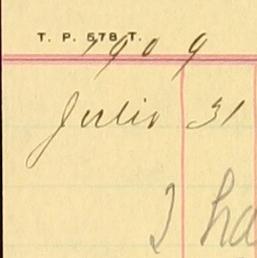 T. P. 578 T.
1909
Julio 31